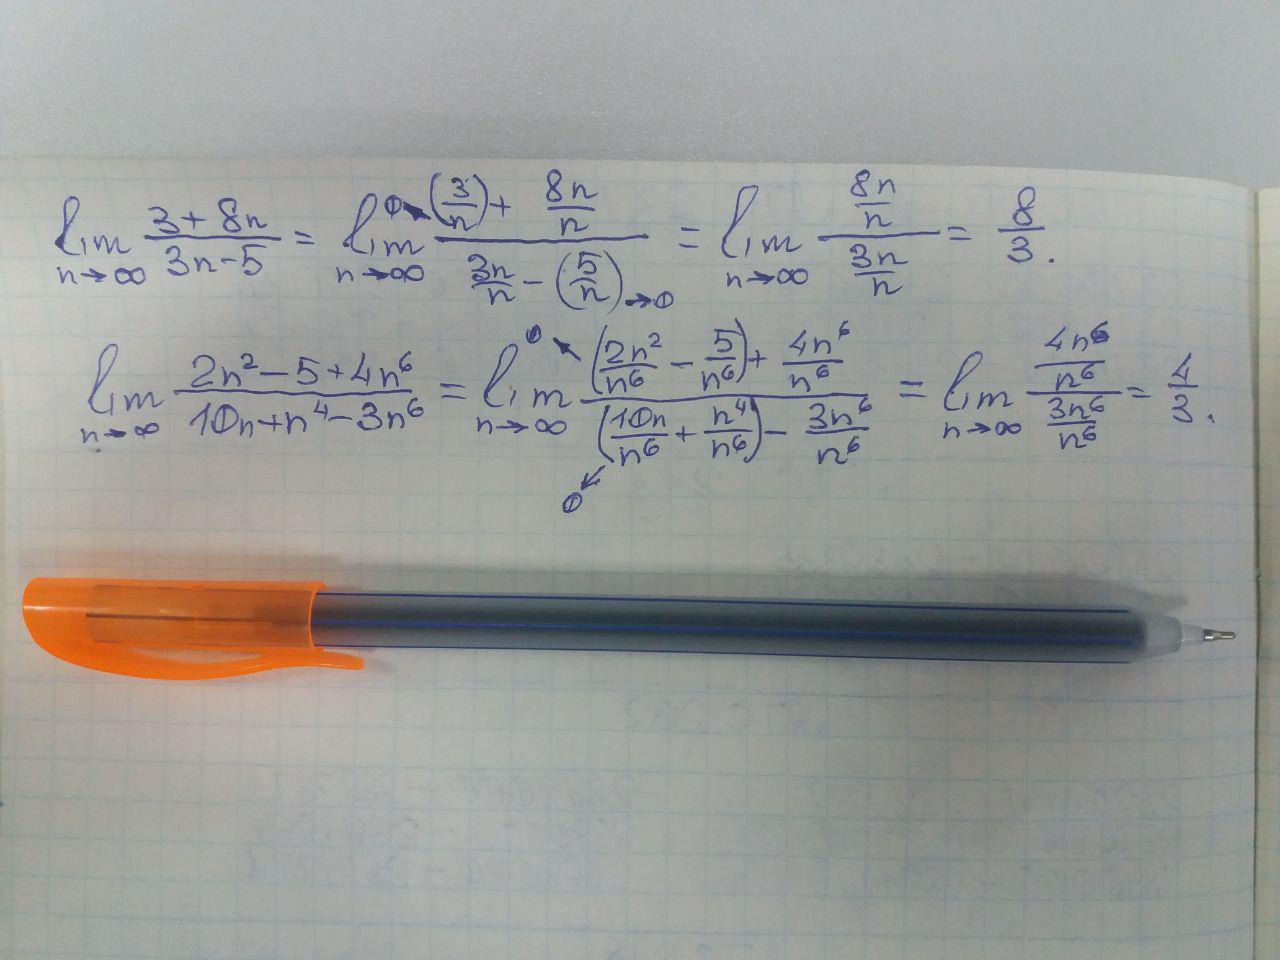 lim n→∞ (3+8n)/(3n-5) = lim n→∞ (0← (3/n) + 8n/n)/(3n/n - (5/n) →0) = lim n→∞ (8n/n)/(3n/n) = 8/3.
lim n→∞ (2n²-5+4n⁶)/(10n+n⁴-3n⁶) = lim n→∞ (0← (2n²/n⁶ - 5/n⁶) + 4n⁶/n⁶)/((10n/n⁶ + n⁴/n⁶) →0 - 3n⁶/n⁶) = lim n→∞ (4n⁶/n⁶)/(3n⁶/n⁶) = 4/3.